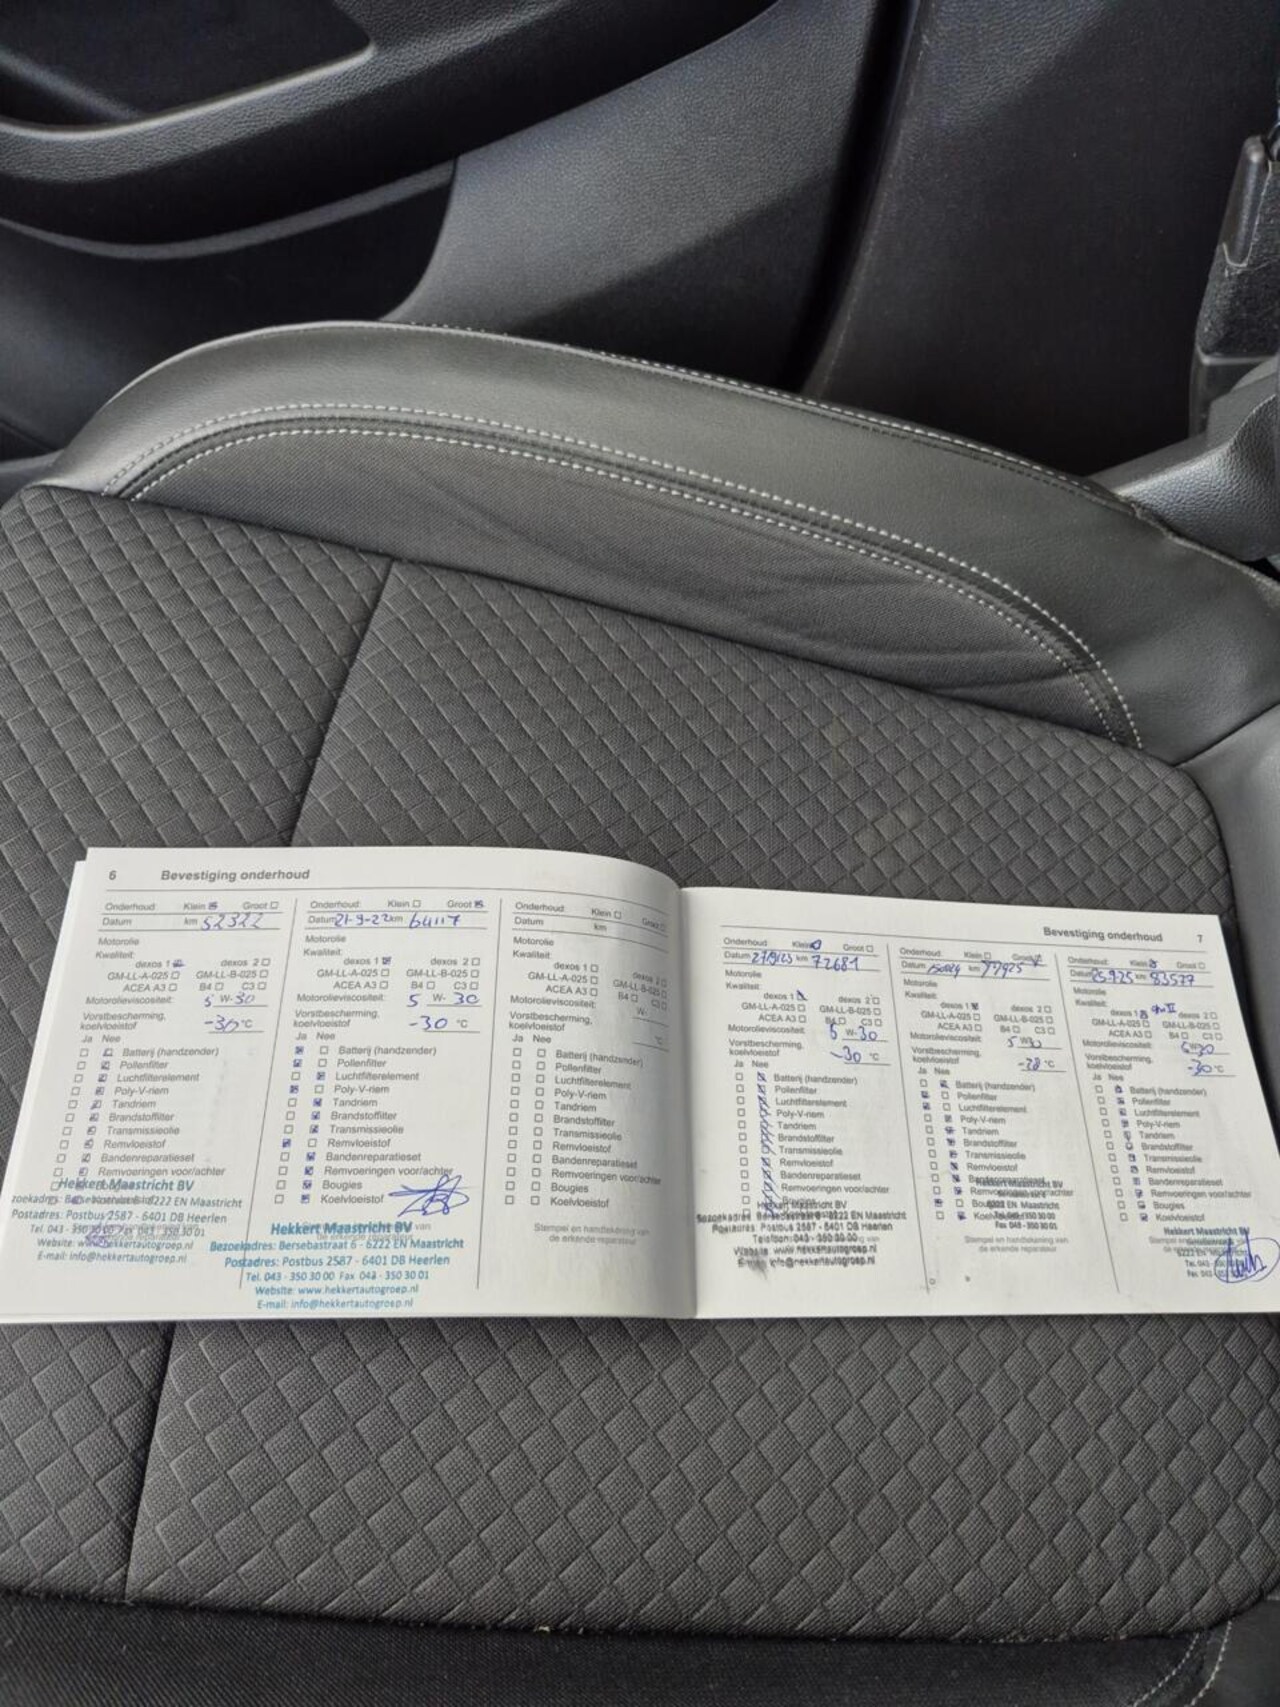 6 Bevestiging onderhoud
Onderhoud: Klein Groot
Datum km 52322
Motorolie
Kwaliteit:
dexos 1 dexos 2
GM-LL-A-025 GM-LL-B-025
ACEA A3 B4 C3
Motorolieviscositeit: 5 W-30
Vorstbescherming,
koelvloeistof -30 °C
Ja Nee
Batterij (handzender)
Pollenfilter
Luchtfilterelement
Poly-V-riem
Tandriem
Brandstoffilter
Transmissieolie
Remvloeistof
Bandenreparatieset
Remvoeringen voor/achter
Hekkert Maastricht BV
zoekadres: Bersebastraat 6 - 6222 EN Maastricht
Postadres: Postbus 2587 - 6401 DB Heerlen
Tel. 043 - 350 30 00 Fax 043 - 350 30 01
Website: www.hekkertautogroep.nl
E-mail: info@hekkertautogroep.nl
Onderhoud: Klein Groot
Datum 21-9-22 km 64117
Motorolie
Kwaliteit:
dexos 1 dexos 2
GM-LL-A-025 GM-LL-B-025
ACEA A3 B4 C3
Motorolieviscositeit: 5 W- 30
Vorstbescherming,
koelvloeistof -30 °C
Ja Nee
Batterij (handzender)
Pollenfilter
Luchtfilterelement
Poly-V-riem
Tandriem
Brandstoffilter
Transmissieolie
Remvloeistof
Bandenreparatieset
Remvoeringen voor/achter
Bougies
Koelvloeistof
Hekkert Maastricht BV van
de erkende reparateur
Bezoekadres: Bersebastraat 6 - 6222 EN Maastricht
Postadres: Postbus 2587 - 6401 DB Heerlen
Tel. 043 - 350 30 00 Fax 043 - 350 30 01
Website: www.hekkertautogroep.nl
E-mail: info@hekkertautogroep.nl
Onderhoud: Klein Groot
Datum km
Motorolie
Kwaliteit:
dexos 1 dexos 2
GM-LL-A-025 GM-LL-B-025
ACEA A3 B4 C3
Motorolieviscositeit: W-
Vorstbescherming,
koelvloeistof °C
Ja Nee
Batterij (handzender)
Pollenfilter
Luchtfilterelement
Poly-V-riem
Tandriem
Brandstoffilter
Transmissieolie
Remvloeistof
Bandenreparatieset
Remvoeringen voor/achter
Bougies
Koelvloeistof
Stempel en handtekening van
de erkende reparateur
Bevestiging onderhoud 7
Onderhoud: Klein Groot
Datum 27/9/23 km 72681
Motorolie
Kwaliteit:
dexos 1 dexos 2
GM-LL-A-025 GM-LL-B-025
ACEA A3 B4 C3
Motorolieviscositeit: 5 W-30
Vorstbescherming,
koelvloeistof -30 °C
Ja Nee
Batterij (handzender)
Pollenfilter
Luchtfilterelement
Poly-V-riem
Tandriem
Brandstoffilter
Transmissieolie
Remvloeistof
Bandenreparatieset
Remvoeringen voor/achter
Bougies
Hekkert Maastricht BV
Bezoekadres Bersebastraat 6 - 6222 EN Maastricht
Postadres: Postbus 2587 - 6401 DB Heerlen
Telefoon: 043 - 350 30 00
Website www.hekkertautogroep.nl
E-mail info@hekkertautogroep.nl
Onderhoud: Klein Groot
Datum km 77925
Motorolie
Kwaliteit:
dexos 1 dexos 2
GM-LL-A-025 GM-LL-B-025
ACEA A3 B4 C3
Motorolieviscositeit: 5 W30
Vorstbescherming,
koelvloeistof -28 °C
Ja Nee
Batterij (handzender)
Pollenfilter
Luchtfilterelement
Poly-V-riem
Tandriem
Brandstoffilter
Transmissieolie
Remvloeistof
Bandenreparatieset
Hekkert Maastricht BV
Remvoeringen voor/achter
Bougies
6222 EN Maastricht
Koelvloeistof
Tel. 043 - 350 30 00
Fax 043 - 350 30 01
Stempel en handtekening van
de erkende reparateur
Onderhoud: Klein Groot
Datum km 83577
Motorolie
Kwaliteit:
dexos 1 dexos 2
GM-LL-A-025 GM-LL-B-025
ACEA A3 B4 C3
Motorolieviscositeit: 5W30
Vorstbescherming,
koelvloeistof -30 °C
Ja Nee
Batterij (handzender)
Pollenfilter
Luchtfilterelement
Poly-V-riem
Tandriem
Brandstoffilter
Transmissieolie
Remvloeistof
Bandenreparatieset
Remvoeringen voor/achter
Bougies
Koelvloeistof
Hekkert Maastricht BV
Stempel en
de erkende reparateur
6222 EN Maastricht
Tel. 043 -
Fax 043 -